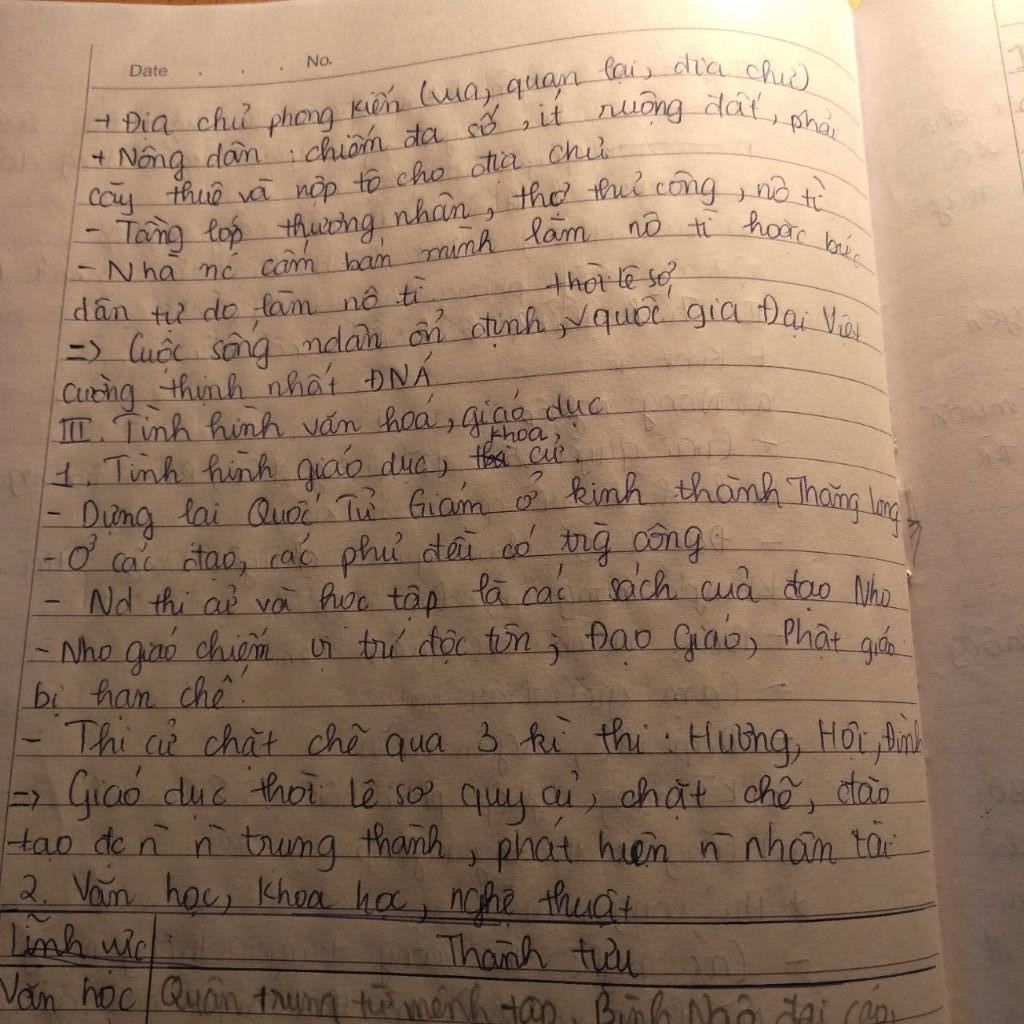 Date . . . No.
+ Địa chủ phong kiến (vua, quan lại, địa chủ)
+ Nông dân : chiếm đa số, ít ruộng đất, phải
cày thuê và nộp tô cho địa chủ
- Tầng lớp thương nhân, thợ thủ công, nô tì
- Nhà nc cấm bán mình làm nô tì hoặc bức
dân tự do làm nô tì.
thời lê sơ
=> Cuộc sống ndân ổn định, quốc gia Đại Việt
cường thịnh nhất ĐNÁ
III. Tình hình văn hoá, giáo dục
khoa,
1. Tình hình giáo dục, thi cử.
- Dựng lại Quốc Tử Giám ở kinh thành Thăng Long
- Ở các đạo, các phủ đều có trg công
- Nd thi cử và học tập là các sách của đạo Nho
- Nho giáo chiếm vị trí độc tôn ; Đạo Giáo, Phật giáo
bị hạn chế.
- Thi cử chặt chẽ qua 3 kì thi : Hương, Hội, Đình
=> Giáo dục thời Lê sơ quy củ, chặt chẽ, đào
tạo đc n̄ n̄ trung thành, phát hiện n̄ nhân tài
2. Văn học, khoa học, nghệ thuật
Lĩnh vực Thành tựu
Văn học Quân trung từ mệnh tập, Bình Ngô đại cáo,